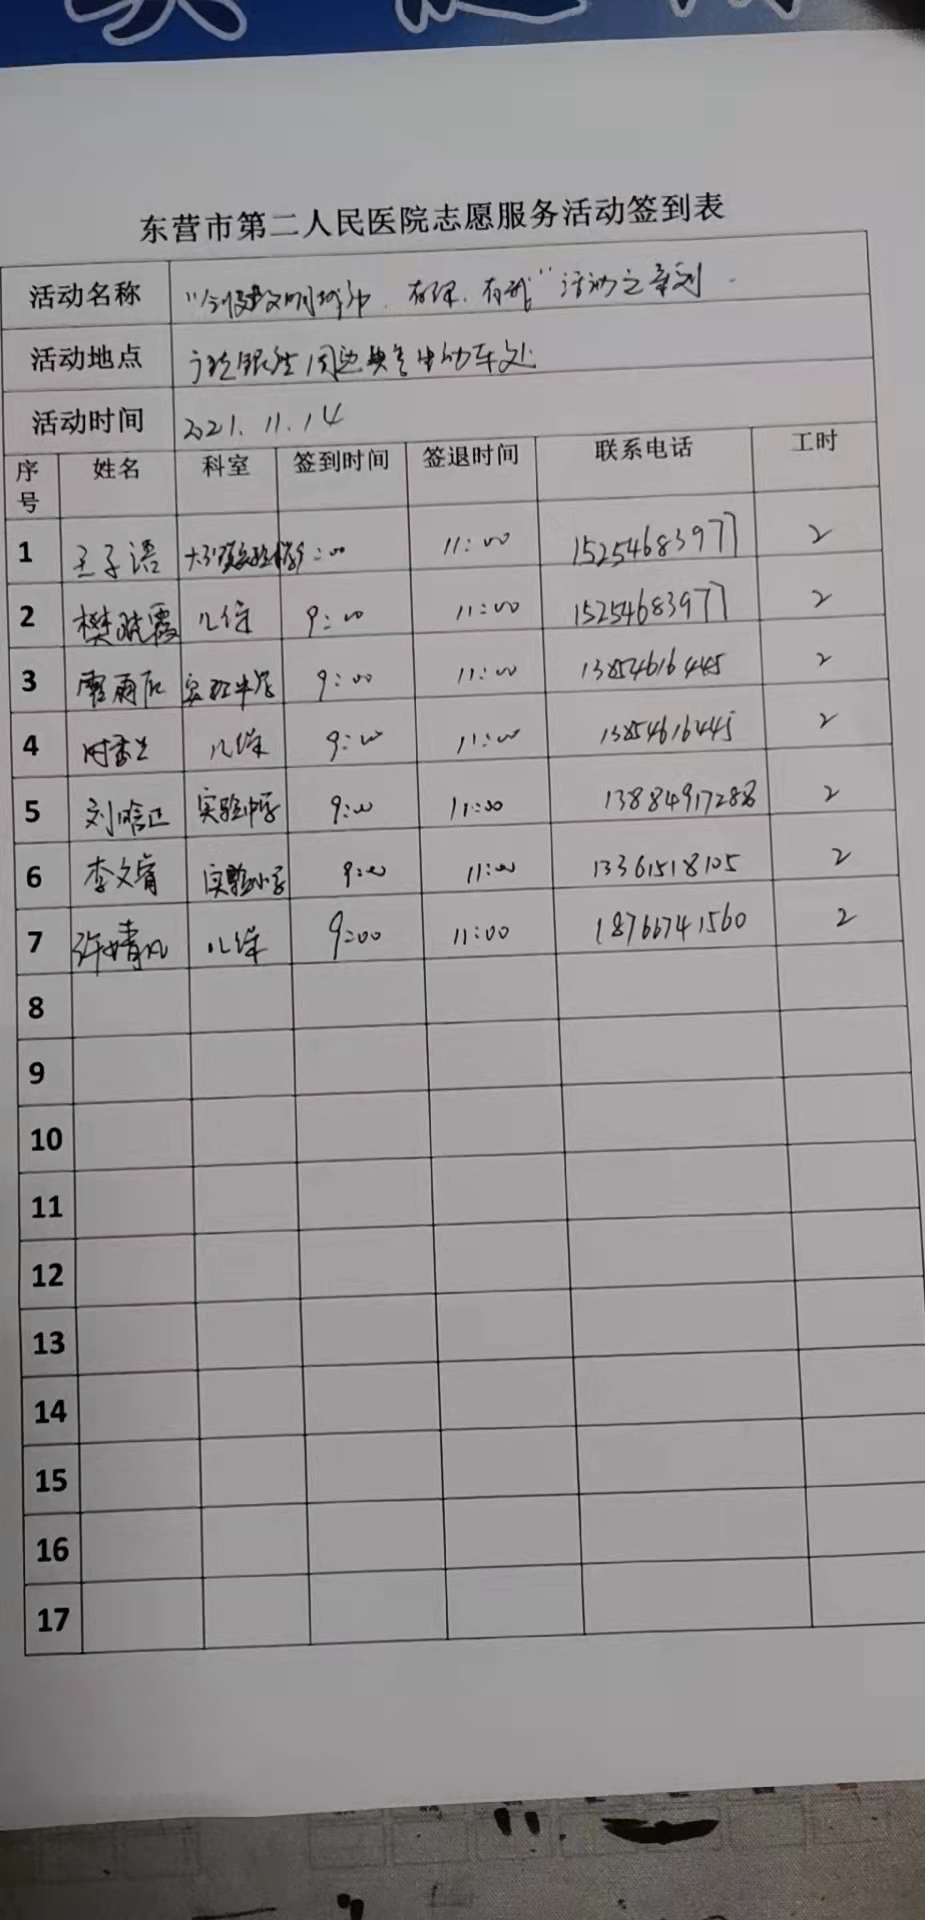 东营市第二人民医院志愿服务活动签到表
活动名称 "创建文明城市、有你、有我"活动之系列
活动地点
活动时间 2021.11.14
序号 姓名 科室 签到时间 签退时间 联系电话 工时
1 王子语 :00 11:00 15254683977 2
2 樊晓霞 儿保 9:00 11:00 15254683977 2
3 实验中学 9:00 11:00 13854616445 2
4 儿保 9:00 11:00 13854616445 2
5 刘晗正 实验中学 9:00 11:00 13884917288 2
6 李文睿 实验小学 9:00 11:00 13361518105 2
7 许婧凡 儿保 9:00 11:00 18766741560 2
8
9
10
11
12
13
14
15
16
17